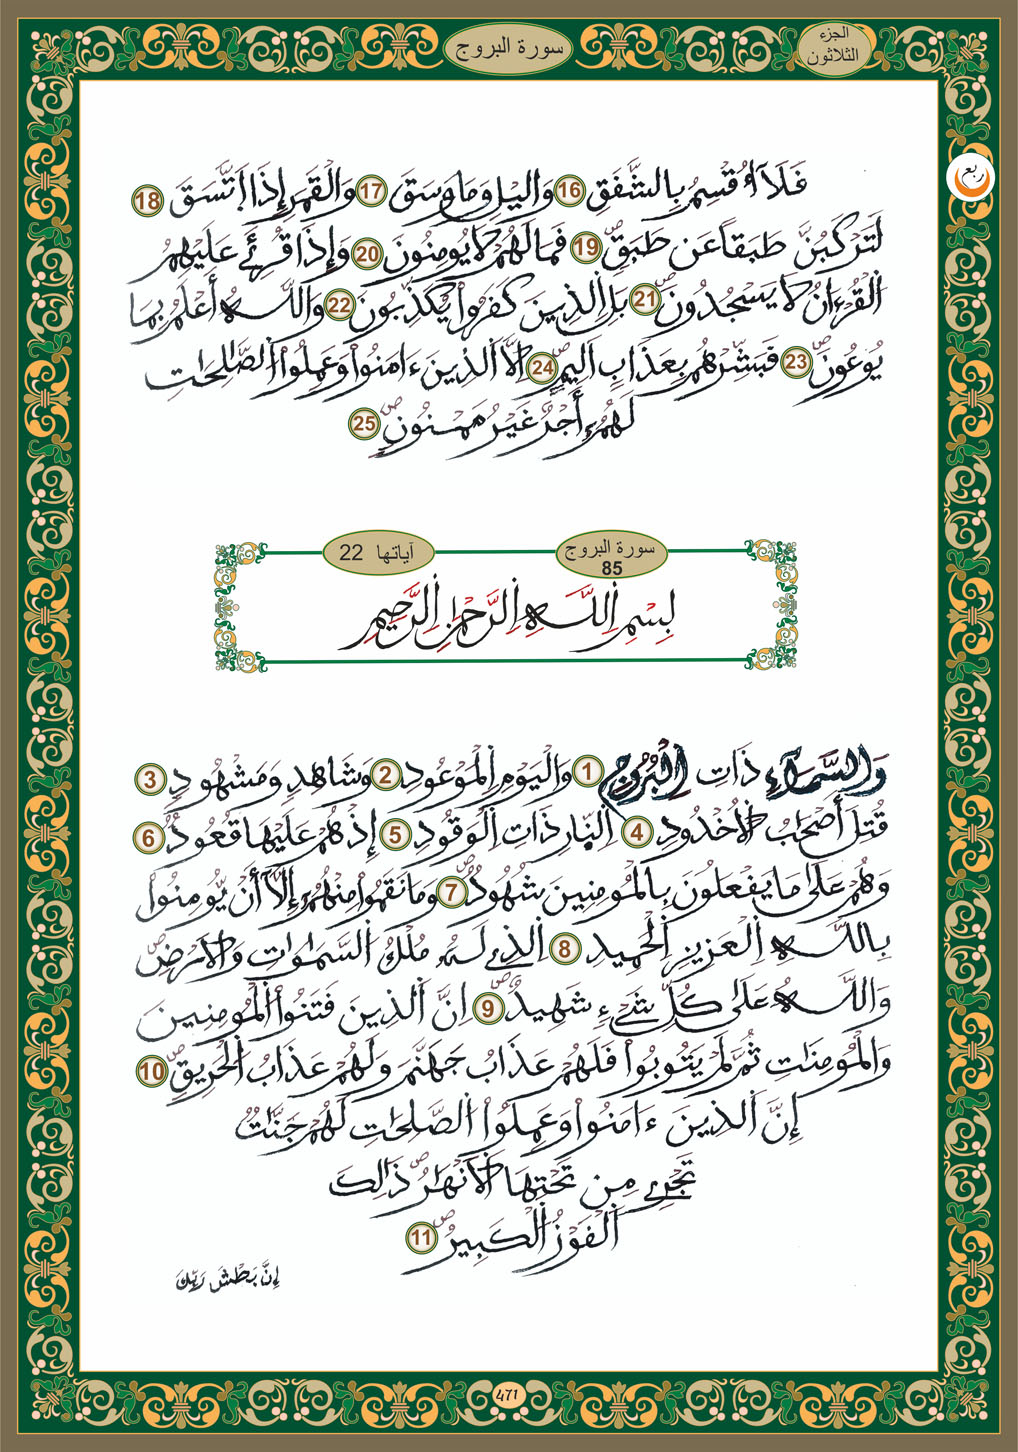 سورة البروج
الجزء
الثلاثون
ربع
فَلَآ أُقْسِمُ بِالشَّفَقِ 16 وَاليْلِ وَمَا وَسَقَ 17 وَالْقَمَرِ إِذَا اَتَّسَقَ 18
لَتَرْكَبُنَّ طَبَقاً عَن طَبَقٍۖ 19 فَمَا لَهُمْ لَا يُومِنُونَ 20 وَإِذَا قُرِئَ عَلَيْهِمُ
اُلْقُرْءَانُ لَا يَسْجُدُونَۖ 21 بَلِ اِلذِينَ كَفَرُواْ يُكَذِّبُونَ 22 وَاللَّهُ أَعْلَمُ بِمَا
يُوعُونَۖ 23 فَبَشِّرْهُم بِعَذَابٍ اَلِيمٍۖ 24 اِلَّا اَلذِينَ ءَامَنُواْ وَعَمِلُواْ اُلصَّٰلِحَٰتِ
لَهُمُۥٓ أَجْرٌ غَيْرُ مَمْنُونٍۖ 25
سورة البروج
85
آياتها 22
بِسْمِ اِللَّهِ اِلرَّحْمَٰنِ اِلرَّحِيمِ
وَالسَّمَآءِ ذَاتِ اِلْبُرُوجِ 1 وَالْيَوْمِ اِلْمَوْعُودِ 2 وَشَاهِدٍ وَمَشْهُودٍ 3
قُتِلَ أَصْحَٰبُ اُلْأُخْدُودِ 4 اِلنَّارِ ذَاتِ اِلْوَقُودِ 5 إِذْ هُمْ عَلَيْهَا قُعُودٌ 6
وَهُمْ عَلَىٰ مَا يَفْعَلُونَ بِالْمُومِنِينَ شُهُودٌۖ 7 وَمَا نَقَمُواْ مِنْهُمُۥٓ إِلَّآ أَنْ يُّومِنُواْ
بِاللَّهِ اِلْعَزِيزِ اِلْحَمِيدِ 8 اِلذِے لَهُۥ مُلْكُ اُلسَّمَٰوَٰتِ وَالْأَرْضِۖ
وَاللَّهُ عَلَىٰ كُلِّ شَےْءٖ شَهِيدٌۖ 9 اِنَّ اَلذِينَ فَتَنُواْ اُلْمُومِنِينَ
وَالْمُومِنَٰتِ ثُمَّ لَمْ يَتُوبُواْ فَلَهُمْ عَذَابُ جَهَنَّمَ وَلَهُمْ عَذَابُ اُلْحَرِيقِۖ 10
إِنَّ اَلذِينَ ءَامَنُواْ وَعَمِلُواْ اُلصَّٰلِحَٰتِ لَهُمْ جَنَّٰتٌ
تَجْرِے مِن تَحْتِهَا اَلْأَنْهَٰرُۖ ذَٰلِكَ
اَلْفَوْزُ اُلْكَبِيرُۖ 11
إِنَّ بَطْشَ رَبِّكَ
471